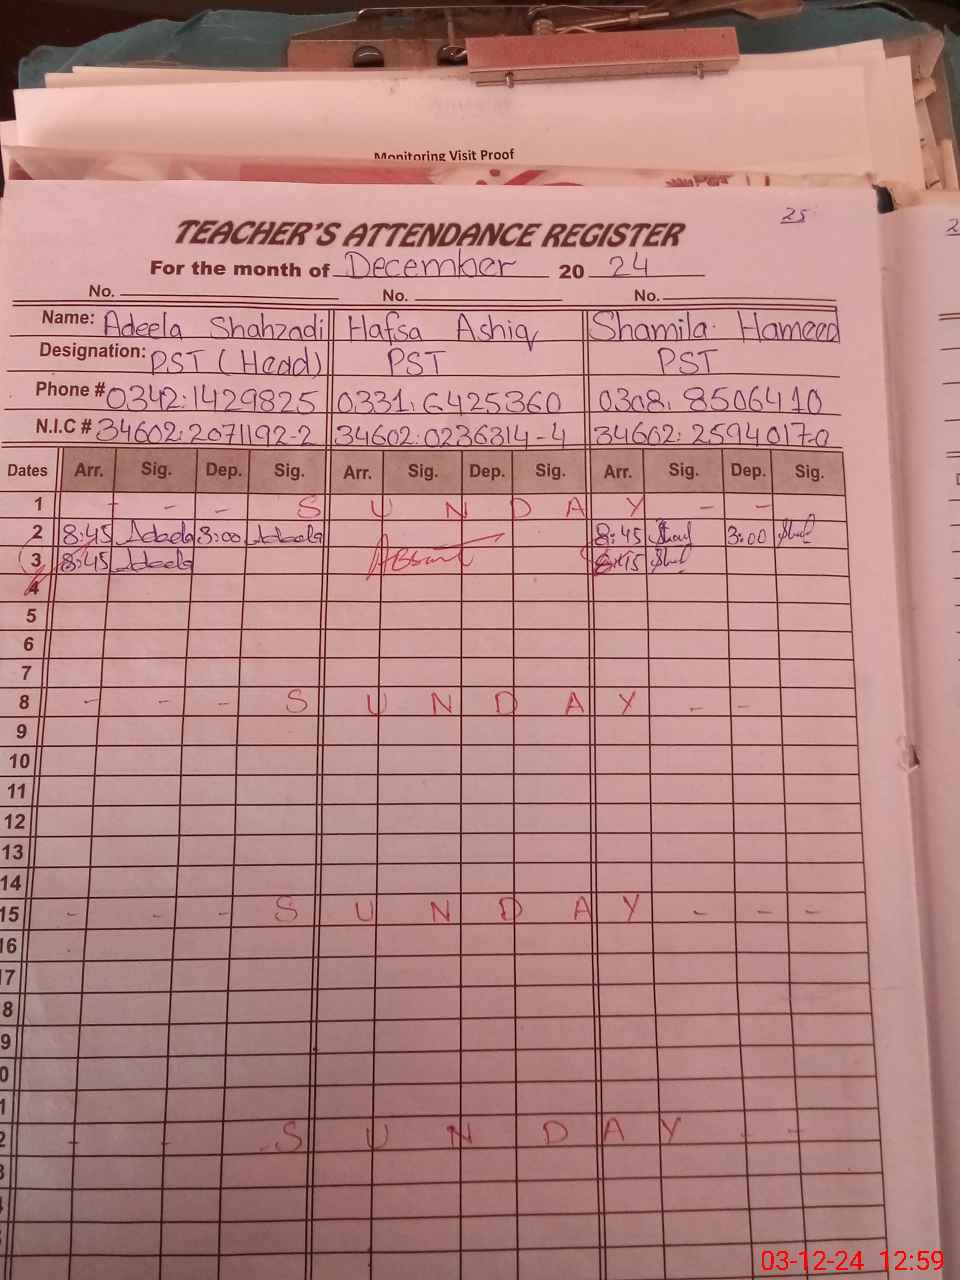 Monitoring Visit Proof
25
TEACHER'S ATTENDANCE REGISTER
For the month of December 2024
No. No. No.
Name: Adeela Shahzadi Hafsa Ashiq Shamila Hameed
Designation: PST (Head) PST PST
Phone # 0342:1429825 0331,6425360 0308, 8506410
N.I.C # 34602:2071192-2 34602:0236314-4 34602:2594017-0
Dates Arr. Sig. Dep. Sig. Arr. Sig. Dep. Sig. Arr. Sig. Dep. Sig.
1 - - - S U N D A Y - -
2 8:45 Adeela 3:00 Adeela 8:45 3:00
3 8:45 Adeela Absent 8:45
4
5
6
7
8 - - - S U N D A Y - -
9
10
11
12
13
14
15 - - - S U N D A Y - - -
16
17
8
9
0
1
2 - - S U N D A Y - -
3
03-12-24 12:59